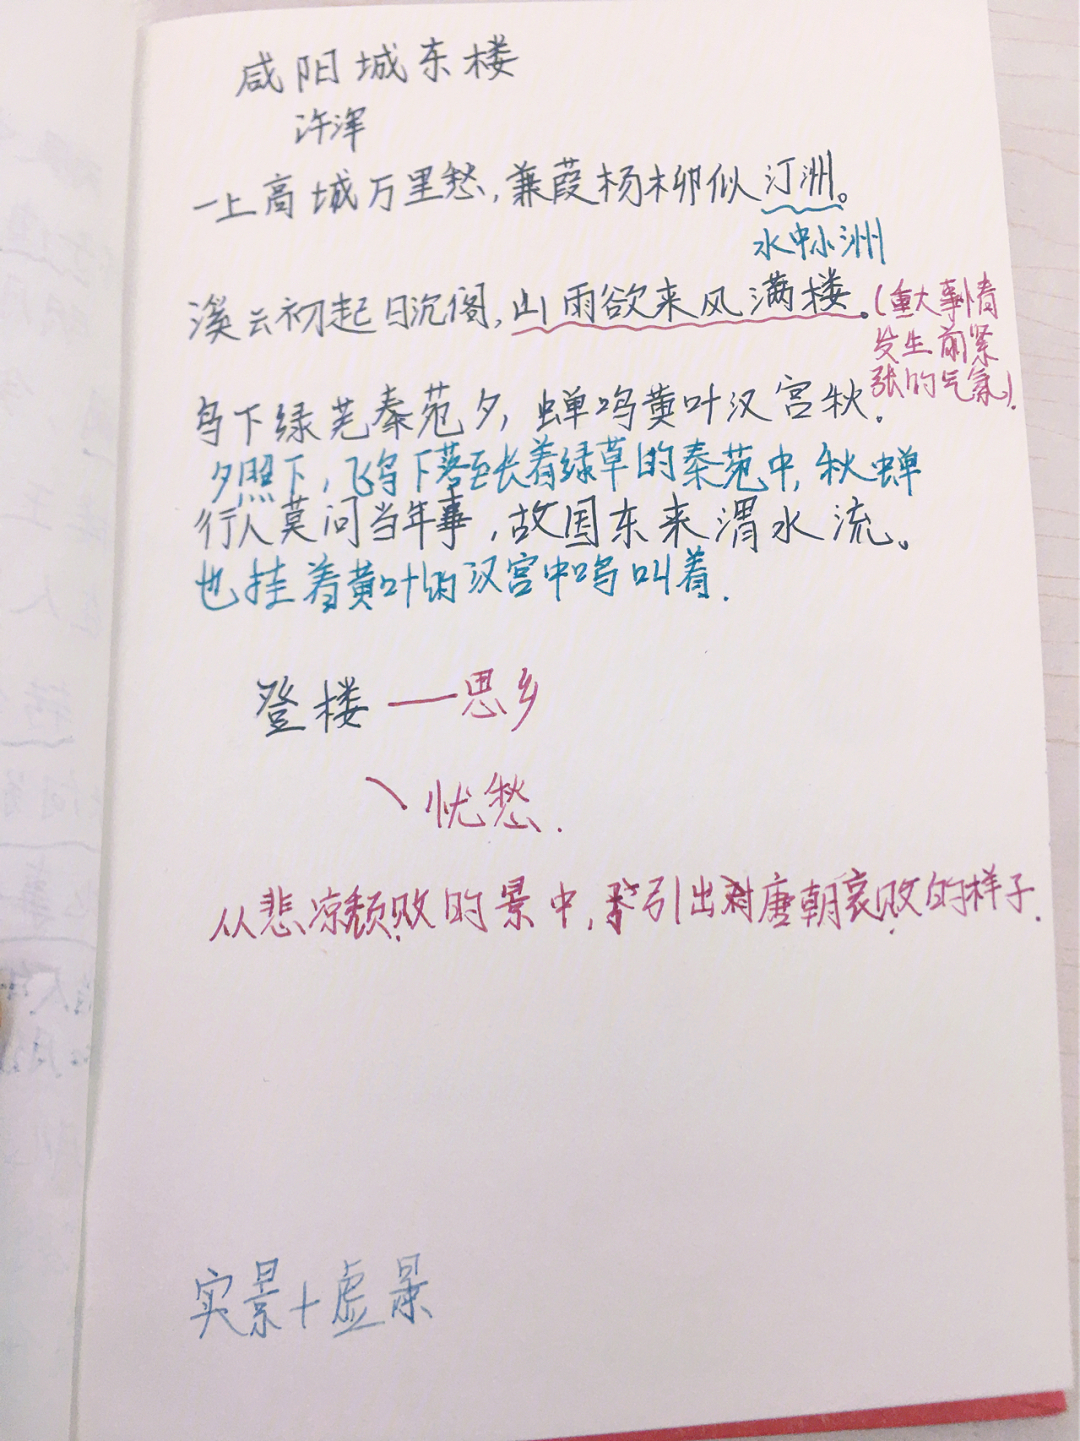 咸阳城东楼
许浑
一上高城万里愁，蒹葭杨柳似汀洲。
水中小洲
溪云初起日沉阁，山雨欲来风满楼。（重大事情
发生前紧
张的气氛）.
鸟下绿芜秦苑夕，蝉鸣黄叶汉宫秋。
夕照下，飞鸟下落至长着绿草的秦苑中，秋蝉
行人莫问当年事，故国东来渭水流。
也挂着黄叶的汉宫中鸣叫着.
登楼——思乡
忧愁.
从悲凉颓败的景中，引出对唐朝衰败的样子.
实景+虚景